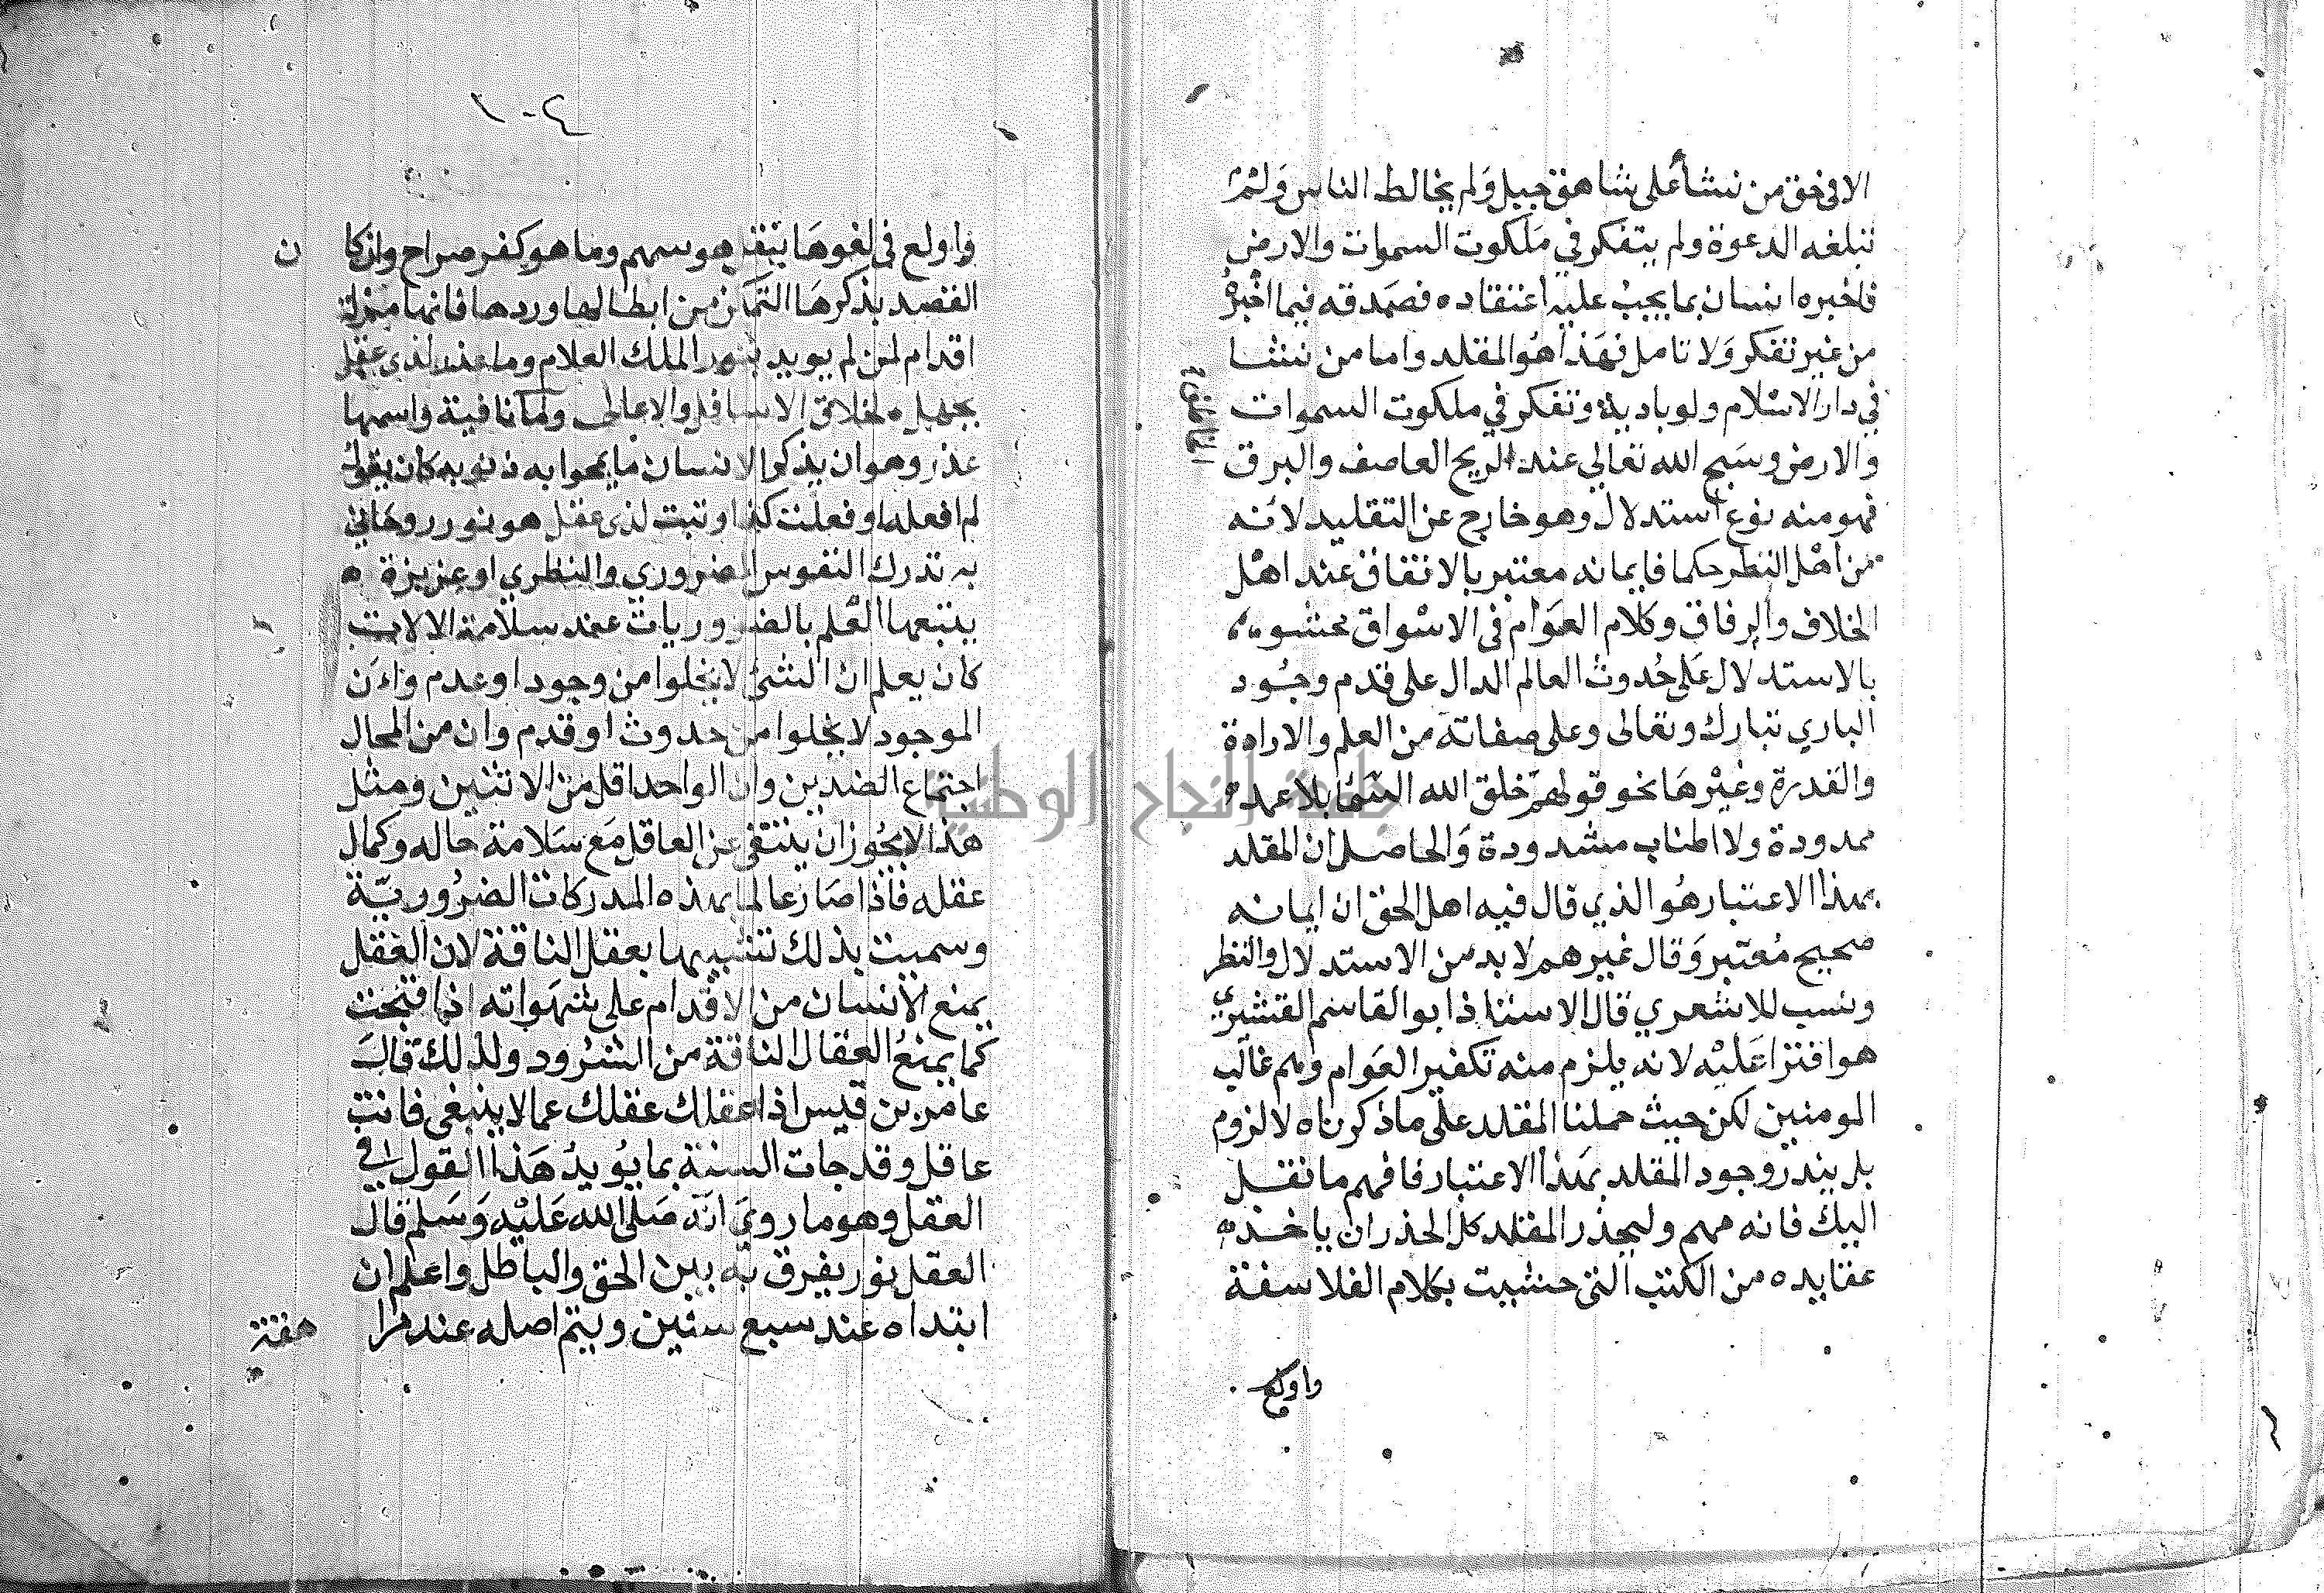 الا في حق من نشأ على شاهق جبل ولم يخالط الناس ولم
تبلغه الدعوة ولم يتفكر في ملكوت السموات والارض
فاخبره انسان بما يجب عليه اعتقاده فصدقه فيما اخبره
من غير تفكر ولا تامل فهذا هو المقلد واما من نشا
في دار الاسلام ولو بادية وتفكر في ملكوت السموات
والارض وسبح الله تعالي عند الريح العاصف والبرق
فهو منه نوع استدلال وهو خارج عن التقليد لانه
من اهل النظر حكما فايمانه معتبر بالاتفاق عند اهل
الخلاف والوفاق وكلام العوام في الاسواق محشو
بالاستدلال على حدوث العالم الدال على قدم وجود
الباري تبارك وتعالى وعلى صفاته من العلم والارادة
والقدرة وغيرها نحو قولهم خلق الله السما بلا عمد
ممدودة ولا اطناب مشدودة والحاصل ان المقلد
بهذا الاعتبار هو الذي قال فيه اهل الحق ان ايمانه
صحيح معتبر وقال غيرهم لا بد من الاستدلال والنظر
ونسب للاشعري قال الاستاذ ابو القاسم القشيري
هو افترا عليه لانه يلزم منه تكفير العوام وهم غالب
المومنين لكن حيث حملنا المقلد على ما ذكرناه لا لزوم
بل يندر وجود المقلد بهذا الاعتبار فافهم ما نقل
اليك فانه مهم وليحذر المقلد كل الحذر ان ياخذ
عقايده من الكتب التي حشيت بكلام الفلاسفة
واولع
٢٠١
واولع في لغوها بنقل هوسهم وما هو كفر صراح وان كان
القصد بذكرها التمكن من ابطالها وردها فانها مزلة
اقدام لمن لم يويد بنور الملك العلام وما عذر لذي عقل
بجهله لخلاق الاسافل والاعالى ولما نافية واسمها
عذر وهو ان يذكر الانسان ما يمحوا به ذنوبه كان يقول
لم افعله او فعلت كذا وتبت لذي عقل هو نور روحاني
به تدرك النفوس الضروري والنظري او غريزة
يتبعها العلم بالضروريات عند سلامة الالات
كان يعلم ان الشئ لا يخلوا من وجود او عدم وان
الموجود لا يخلوا من حدوث او قدم وان من المحال
اجتماع الضدين وان الواحد اقل من الاثنين ومثل
هذا لا يجوز ان ينتفي عن العاقل مع سلامة حاله وكمال
عقله فاذا صار عالما بهذه المدركات الضرورية
وسميت بذلك تشبيها بعقل الناقة لان العقل
يمنع الانسان من الاقدام على شهواته اذا قبحت
كما يمنع العقال الناقة من الشرود ولذلك قال
عامر بن قيس اذا عقلك عقلك عما لا ينبغي فانت
عاقل وقد جات السنة بما يويد هذا القول في
العقل وهو ما روي انه صلى الله عليه وسلم قال
العقل نور يفرق به بين الحق والباطل واعلم ان
ابتداه عند سبع سنين ويتم اصله عند مرا
هقته
جامعة النجاح الوطنية